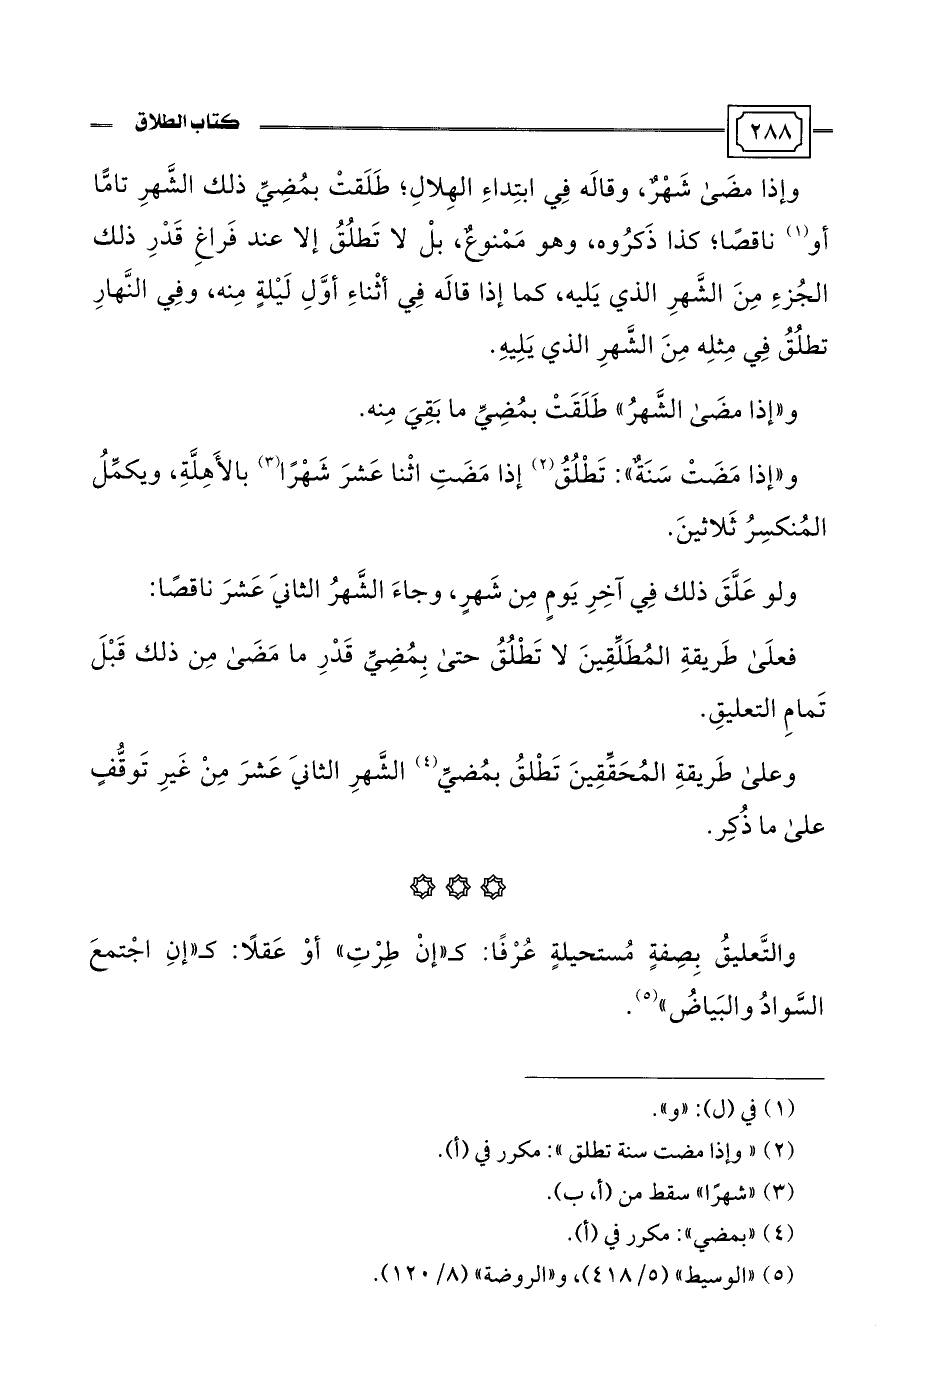 ٢٨٨
كتاب الطلاق
وإذا مضَىٰ شَهْرٌ، وقالَه فِي ابتِداءِ الهِلالِ؛ طَلَقتْ بمُضِيِّ ذلك الشَّهرِ تامًّا
أو(١) ناقصًا؛ كذا ذَكرُوه، وهو مَمْنوعٌ، بلْ لا تَطلُقُ إلا عند فَراغِ قَدْرِ ذلك
الجُزءِ مِنَ الشَّهرِ الذي يَليه، كما إذا قالَه فِي أثْناءِ أوَّلِ لَيْلةٍ مِنه، وفِي النَّهارِ
تطلُقُ فِي مِثلِه مِنَ الشَّهرِ الذي يَلِيهِ.
و«إذا مضَىٰ الشَّهرُ» طَلَقَتْ بمُضِيِّ ما بَقِيَ مِنه.
و«إذا مَضَتْ سَنَةٌ»: تَطْلُقُ(٢) إذا مَضَتِ اثْنا عَشرَ شَهْرًا(٣) بالأَهِلَّةِ، ويكمِّلُ
المُنكسِرُ ثَلاثينَ.
ولو عَلَّقَ ذلك فِي آخِرِ يَومٍ مِن شَهرٍ، وجاءَ الشَّهرُ الثانيَ عَشرَ ناقصًا:
فعلَىٰ طَريقةِ المُطَلِّقِينَ لا تَطْلُقُ حتىٰ بِمُضِيِّ قَدْرِ ما مَضَىٰ مِن ذلك قَبْلَ
تَمامِ التعليقِ.
وعلىٰ طَريقةِ المُحَقِّقِينَ تَطْلقُ بمُضيِّ(٤) الشَّهرِ الثانيَ عَشرَ مِنْ غَيرِ تَوقُّفٍ
علىٰ ما ذُكِر.
والتَّعليقُ بِصِفةٍ مُستحيلةٍ عُرْفًا: كـ«إنْ طِرْتِ» أوْ عَقلًا: كـ«إنِ اجْتمعَ
السَّوادُ والبَياضُ»(٥).
(١) في (ل): «و».
(٢) « وإذا مضت سنة تطلق »: مكرر في (أ).
(٣) «شهرًا» سقط من (أ، ب).
(٤) «بمضي»: مكرر في (أ).
(٥) «الوسيط» (٥/ ٤١٨)، و«الروضة» (٨/ ١٢٠).